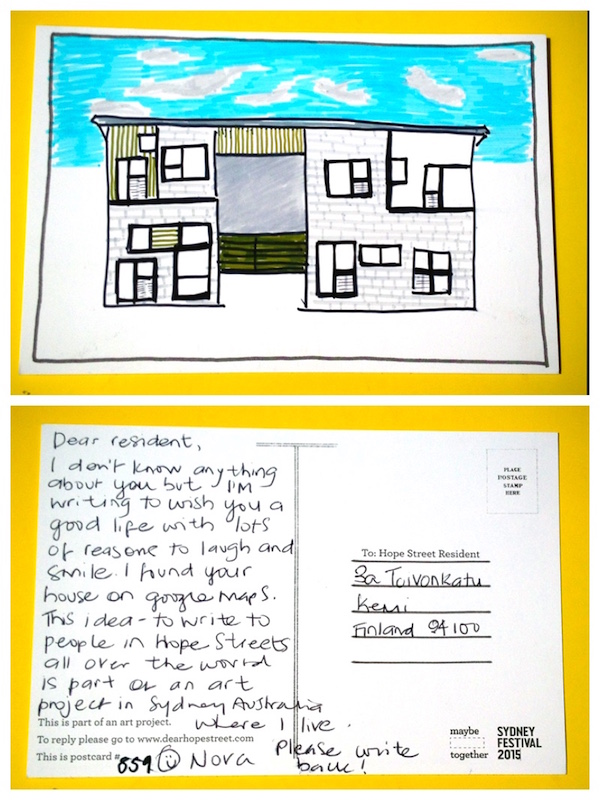 Dear resident,
I don't know anything
about you but I'm
writing to wish you a
good life with lots
of reasons to laugh and
smile. I found your
house on google maps.
This idea - to write to
people in Hope Streets
all over the world
is part of an art
project in Sydney Australia
where I live.
This is part of an art project.
To reply please go to www.dearhopestreet.com
This is postcard # 859
Nova
Please write
back!
PLACE
POSTAGE
STAMP
HERE
To: Hope Street Resident
3a Toivonkatu
Kemi
Finland 94100
maybe
together
SYDNEY
FESTIVAL
2015